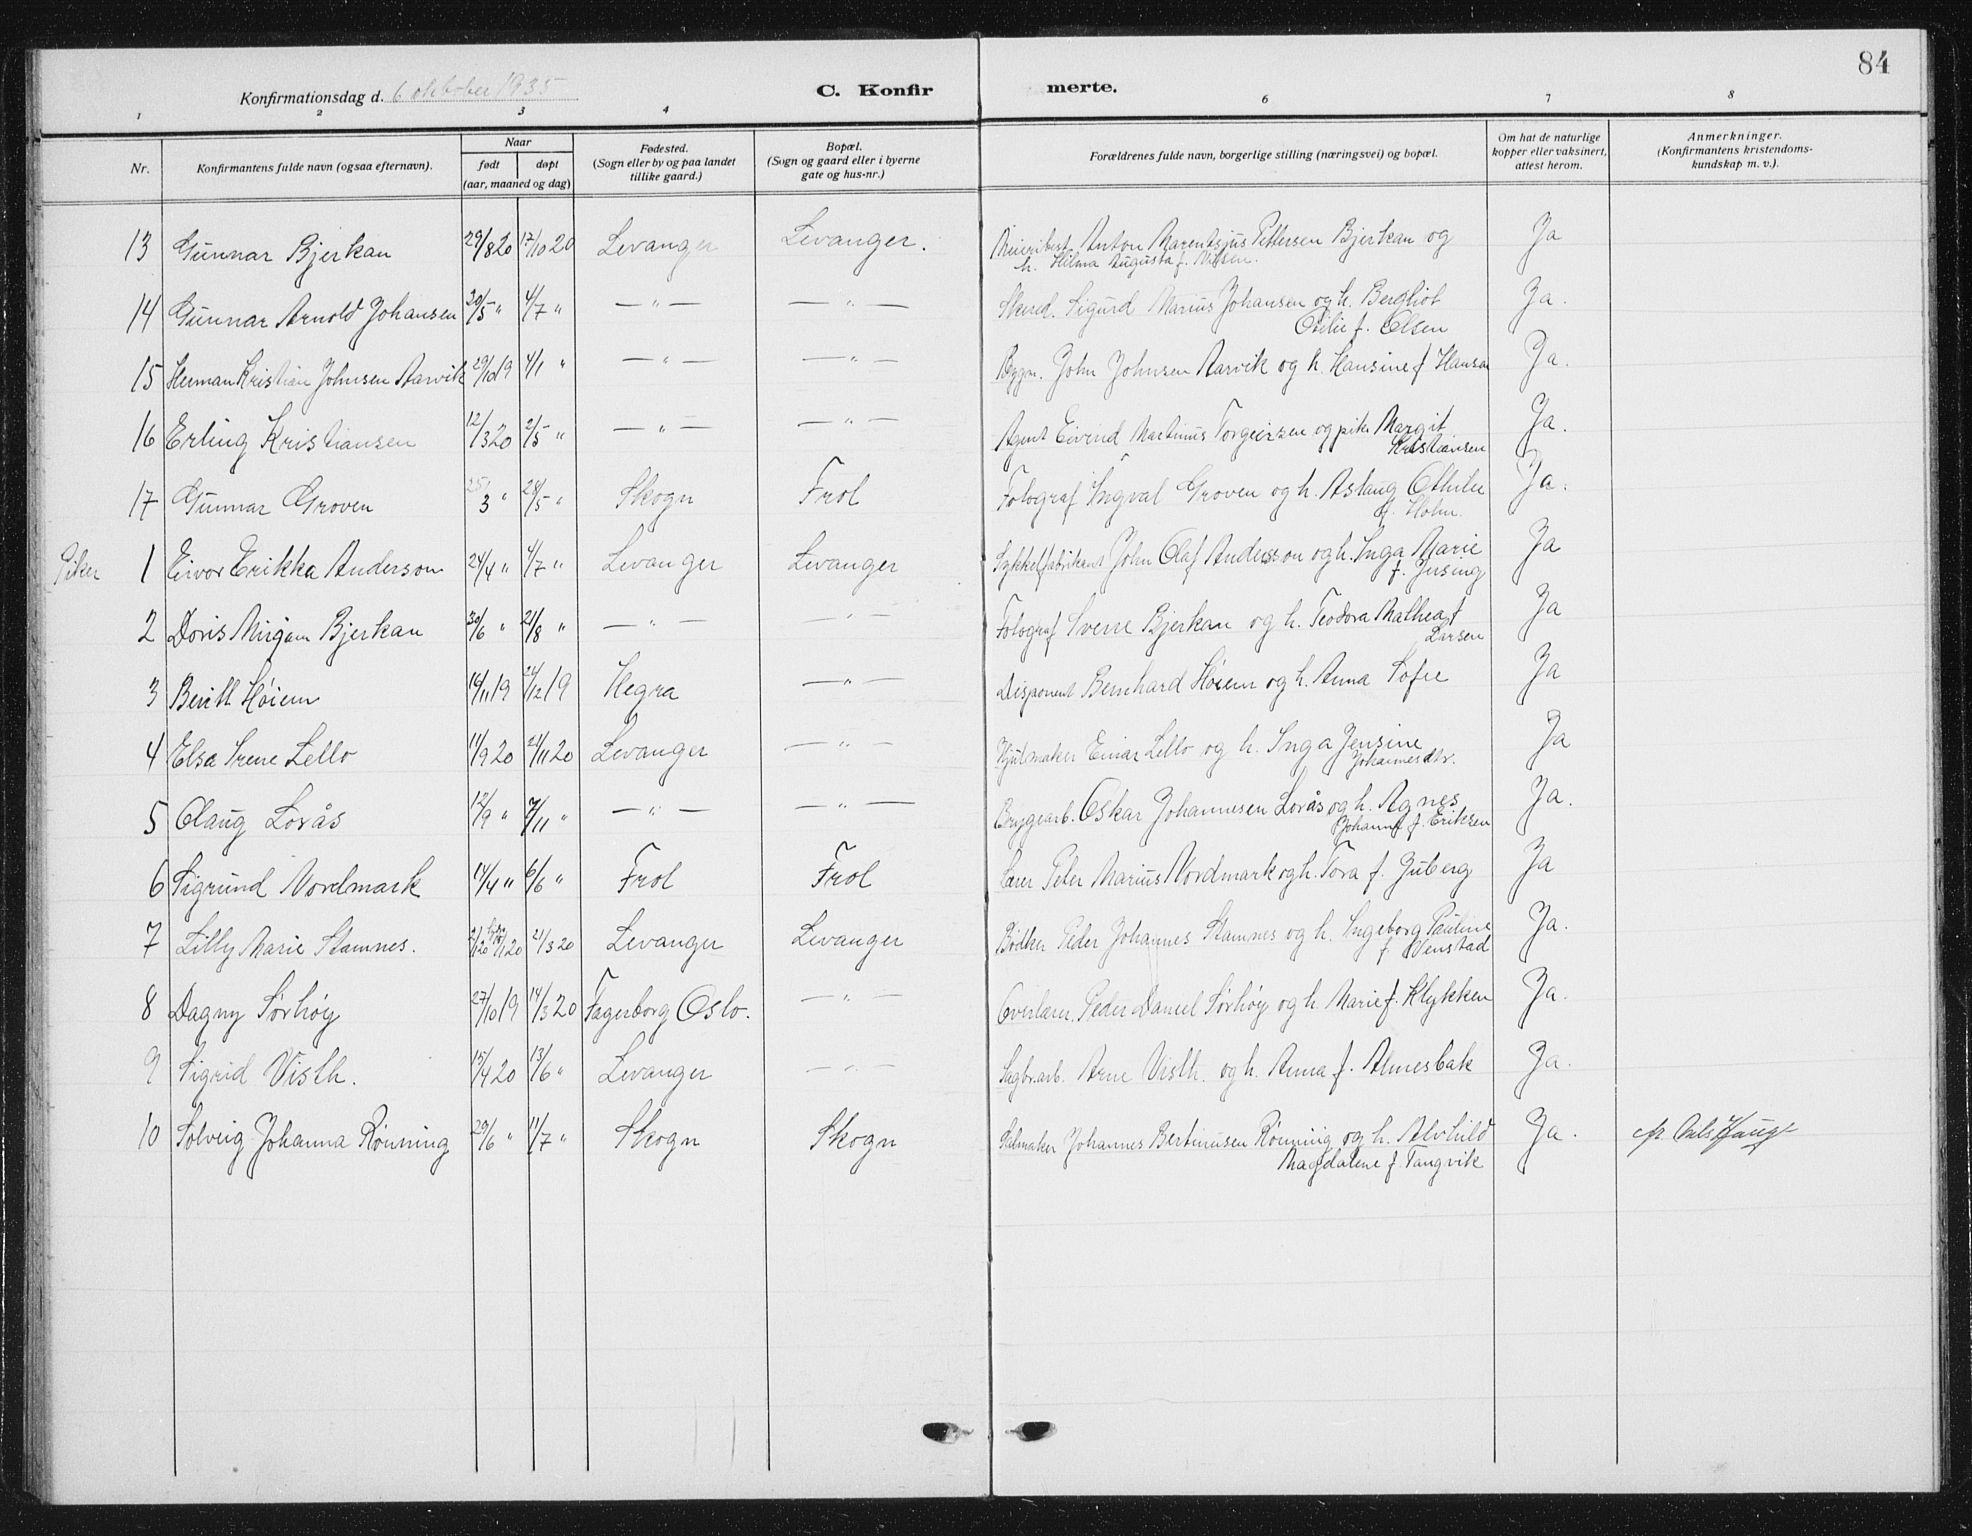 84
Konfirmationsdag d. 6 oktober 1935 C. Konfirmerte.
1 2 3 4 6 7 8
Nr. Konfirmantens fulde navn (ogsaa efternavn). Naar født døpt (aar, maaned og dag) Fødested. (Sogn eller by og paa landet tillike gaard.) Bopæl. (Sogn og gaard eller i byerne gate og hus-nr.) Forældrenes fulde navn, borgerlige stilling (næringsvei) og bopæl. Om hat de naturlige kopper eller vaksinert, attest herom. Anmerkninger. (Konfirmantens kristendomskundskap m. v.).
13 Gunnar Bjerkan 29/8 20 17/10 20 Levanger Levanger. Meieribest. Anton Marentsjus Pettersen Bjerkan og Ja
h. Hilma Augusta f. Nilsen.
14 Gunnar Arnold Johansen 20/5 " 4/7 " — " — — " — Skred. Sigurd Marius Johansen og h. Bergliot Ja.
Otilie f. Olsen
15 Herman Kristian Johnsen Aarvik 29/10 19 4/1 " — " — — " — Bygm. John Johnsen Aarvik og h. Hansine f Hansen Ja.
16 Erling Kristiansen 12/3 20 2/5 " — " — — " — Agent Eivind Martinus Torgeirsen og pike Margit Ja.
Kristiansen
17 Gunnar Groven 25/3 " 28/5 " Skogn Frol Fotograf Ingval Groven og h. Aslaug Othilie Ja.
f. Holm.
Piker 1 Eivor Erikka Anderson 24/4 " 4/7 " Levanger Levanger Sykkelfabrikant John Olaf Andersson og h. Inga Marie Ja
f. Jusing
2 Doris Mirjam Bjerkan 30/6 " 21/8 " — " — — " — Fotograf Sverre Bjerkan og h. Teodora Mathea f Ja
Larsen
3 Berith Høiem 16/11 19 24/12 19 Hegra — " — Disponent Bernhard Høiem og h. Anna Sofie Ja
4 Elsa Irene Lello 11/9 20 21/11 20 Levanger — " — Hjulmaker Einar Lello og h. Inga Jensine Ja
Johannesdtr.
5 Olaug Lorås 12/9 " 7/11 " — " — — " — Bryggearb. Oskar Johannesen Lorås og h. Agnes Ja.
Johanne f. Eriksen
6 Sigrund Nordmark 14/4 " 6/6 " Frol Frol Lærer Peter Marius Nordmark og h. Tora f. Juberg Ja
7 Lilly Marie Stamnes. 21/3 20 Levanger Levanger Bødker Peder Johannes Stamnes og h. Ingeborg Pauline Ja.
f. Venstad
8 Dagny Sørhøy 27/10 19 14/3 20 Fagerborg Oslo. — " — Overlærer. Peder Daniel Sørhøy og h. Marie f. Klykken Ja.
9 Sigrid Visth. 15/4 20 13/6 " Levanger — " — Sagbr.arb. Arne Visth. og h. Anna f. Almesbak Ja.
10 Solveig Johanna Rønning 29/6 " 11/7 " Skogn Skogn Salmaker Johannes Bertinusen Rønning og h. Alvhild Ja.
Magdalene f. Tangvik